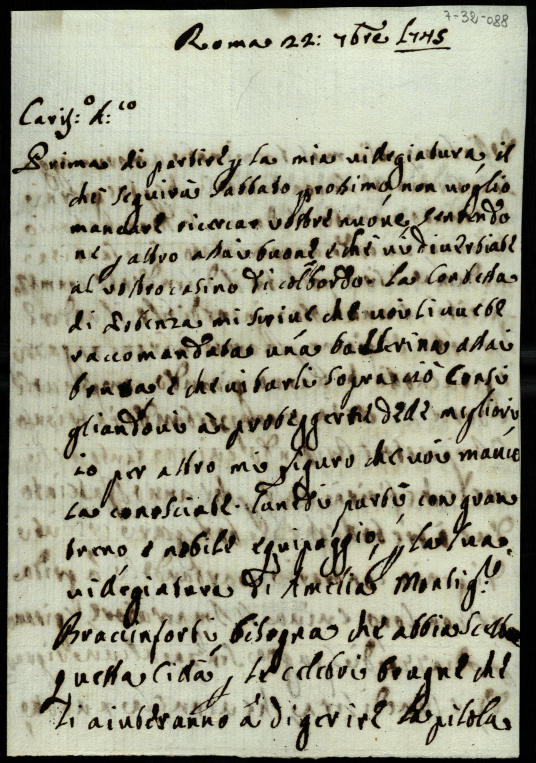 7-32-088
Roma 22: 7bre 1745
Cariss:o A:co
Prima di partire p la mia videgiatura, il
che seguirà Sabbato prossimo, non voglio
mancare ricercar vostre nuove, sentendo
ne p altro assai buone e che vi divertiate
al vostro casino di Colbordo. La Contessa
di mi scrive che voi li avete
raccomandata una ballerina assai
brutta e che vi burli sopra ciò consi
gliandovi à proteggerne delle migliori
io per altro mi figuro che voi manco
la conosciate. Lunedì partì con gran
treno e nobile equipaggio, p la sua
videgiatura di Amelia Monsig.e
Bracciforti, bisogna che abbia scelto
questa Città p le celebri prugne che
li aiuteranno à digerire la pilola